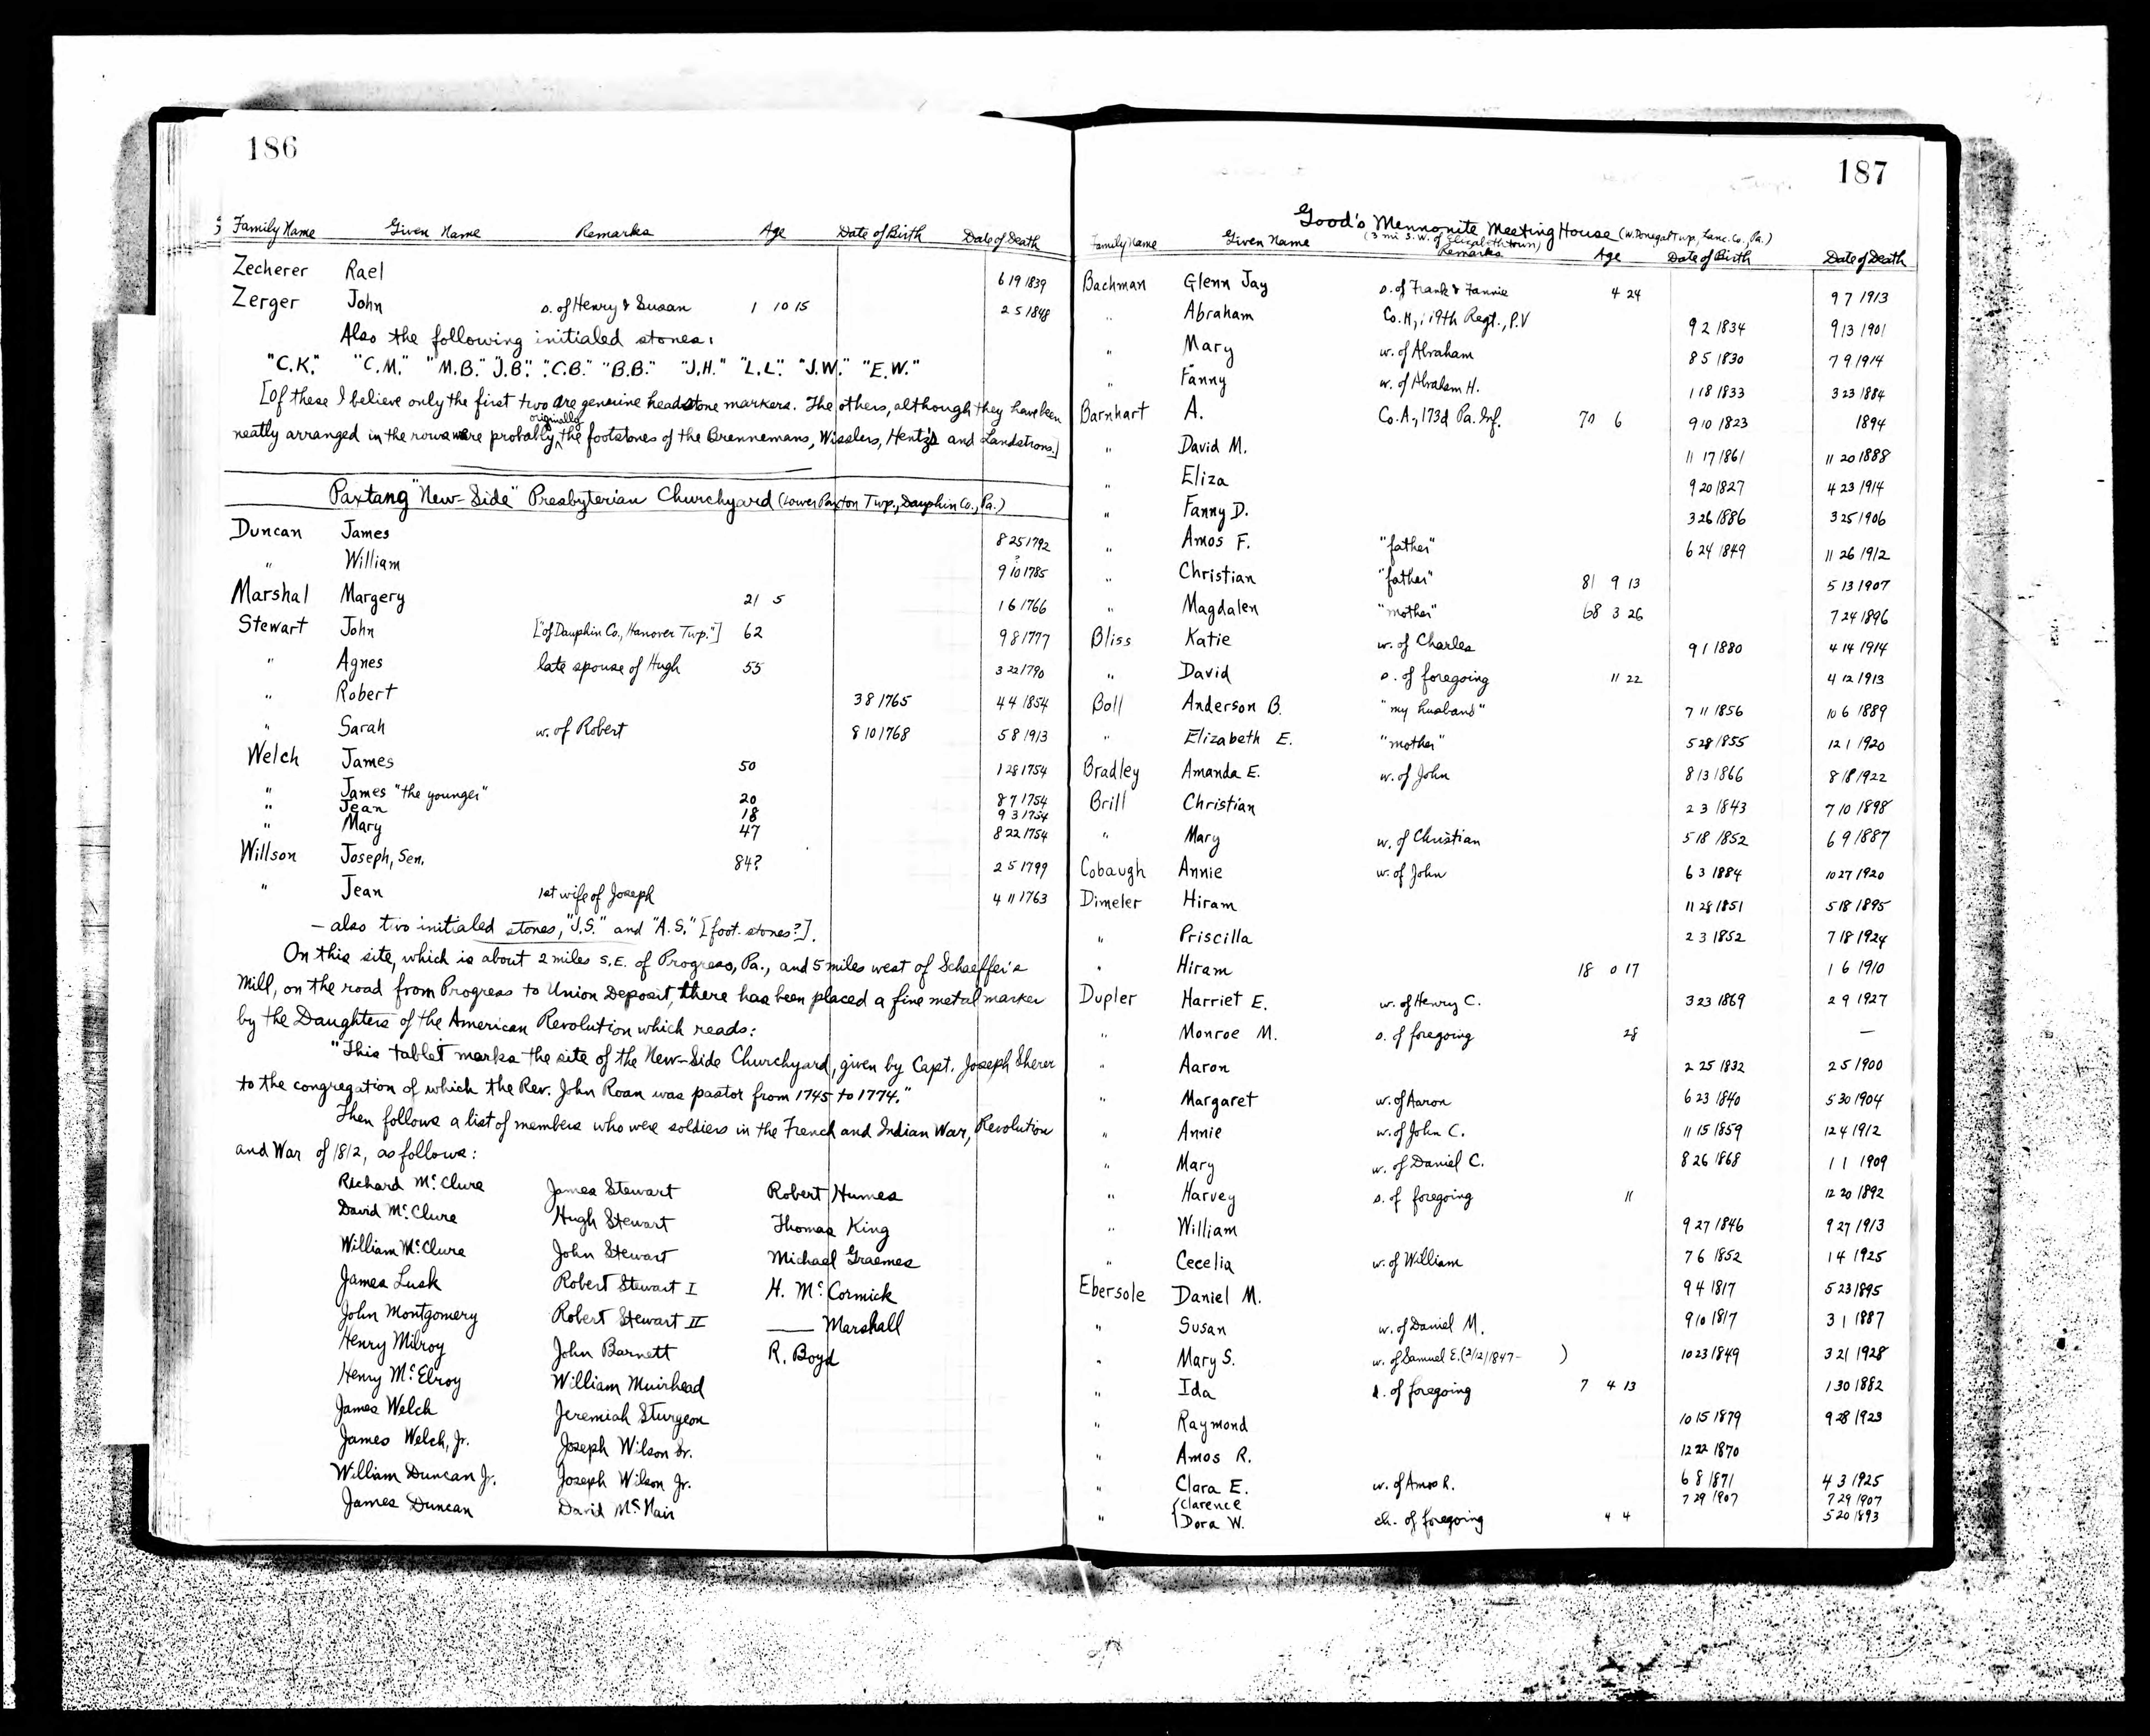 186
Family Name Given Name Remarks Age Date of Birth Date of Death
Zecherer Rael 6 19 1839
Zerger John s. of Henry & Susan 1 10 15 2 5 1848
Also the following initialed stones:
"C.K." "C.M." "M.B." "J.B." "C.B." "B.B." "J.H." "L.L." "J.W." "E.W."
[Of these I believe only the first two are genuine headstone markers. The others, although they have been
neatly arranged in the rows were probably originally the footstones of the Brennemans, Wisslers, Hentz's and Landstrons.]
Paxtang "New-Side" Presbyterian Churchyard (Lower Paxton Twp., Dauphin Co., Pa.)
Duncan James 8 25 1792
" William 9 10? 1785
Marshal Margery 21 5 1 6 1766
Stewart John ["of Dauphin Co., Hanover Twp."] 62 9 8 1777
" Agnes late spouse of Hugh 55 3 22 1790
" Robert 3 8 1765 4 4 1854
" Sarah w. of Robert 8 10 1768 5 8 1913
Welch James 50 1 28 1754
" James "the younger" 20 8 7 1754
" Jean 18 9 3 1754
" Mary 47 8 22 1754
Willson Joseph, Sen. 84? 2 5 1799
" Jean 1st wife of Joseph 4 11 1763
— also two initialed stones, "J.S." and "A.S." [foot-stones?].
On this site, which is about 2 miles S.E. of Progress, Pa., and 5 miles west of Schaeffer's
Mill, on the road from Progress to Union Deposit, there has been placed a fine metal marker
by the Daughters of the American Revolution which reads:
"This tablet marks the site of the New-Side Churchyard, given by Capt. Joseph Sherer
to the congregation of which the Rev. John Roan was pastor from 1745 to 1774."
Then follows a list of members who were soldiers in the French and Indian War, Revolution
and War of 1812, as follows:
Richard McClure James Stewart Robert Humes
David McClure Hugh Stewart Thomas King
William McClure John Stewart Michael Graemes
James Lusk Robert Stewart I H. McCormick
John Montgomery Robert Stewart II —— Marshall
Henry Milroy John Barnett R. Boyd
Henry McElroy William Muirhead
James Welch Jeremiah Sturgeon
James Welch, Jr. Joseph Wilson Sr.
William Duncan Jr. Joseph Wilson Jr.
James Duncan David McNair
187
Good's Mennonite Meeting House (W. Donegal Twp., Lanc. Co., Pa.)
(3 mi S.W. of Elizabethtown)
Family Name Given Name Remarks Age Date of Birth Date of Death
Bachman Glenn Jay s. of Frank & Fannie 4 24 9 7 1913
" Abraham Co. H, 119th Regt., P.V 9 2 1834 9 13 1901
" Mary w. of Abraham 8 5 1830 7 9 1914
" Fanny w. of Abraham H. 1 18 1833 3 23 1884
Barnhart A. Co. A., 173d Pa. Inf. 70 6 9 10 1823 1894
" David M. 11 17 1861 11 20 1888
" Eliza 9 20 1827 4 23 1914
" Fanny D. 3 26 1886 3 25 1906
" Amos F. "father" 6 24 1849 11 26 1912
" Christian "father" 81 9 13 5 13 1907
" Magdalen "mother" 68 3 26 7 24 1896
Bliss Katie w. of Charles 9 1 1880 4 14 1914
" David s. of foregoing 11 22 4 12 1913
Boll Anderson B. "my husband" 7 11 1856 10 6 1889
" Elizabeth E. "mother" 5 28 1855 12 1 1920
Bradley Amanda E. w. of John 8 13 1866 8 18 1922
Brill Christian 2 3 1843 7 10 1898
" Mary w. of Christian 5 18 1852 6 9 1887
Cobaugh Annie w. of John 6 3 1884 10 27 1920
Dimeler Hiram 11 28 1851 5 18 1895
" Priscilla 2 3 1852 7 18 1924
" Hiram 18 0 17 1 6 1910
Dupler Harriet E. w. of Henry C. 3 23 1869 2 9 1927
" Monroe M. s. of foregoing 28 —
" Aaron 2 25 1832 2 5 1900
" Margaret w. of Aaron 6 23 1840 5 30 1904
" Annie w. of John C. 11 15 1859 12 4 1912
" Mary w. of Daniel C. 8 26 1868 1 1 1909
" Harvey s. of foregoing 11 12 20 1892
" William 9 27 1846 9 27 1913
" Cecelia w. of William 7 6 1852 1 4 1925
Ebersole Daniel M. 9 4 1817 5 23 1895
" Susan w. of Daniel M. 9 10 1817 3 1 1887
" Mary S. w. of Samuel E. (2/12/1847- ) 10 23 1849 3 21 1928
" Ida d. of foregoing 7 4 13 1 30 1882
" Raymond 10 15 1879 9 28 1923
" Amos R. 12 22 1870
" Clara E. w. of Amos R. 6 8 1871 4 3 1925
{Clarence 7 29 1907 7 29 1907
" {Dora W. ch. of foregoing 4 4 5 20 1893